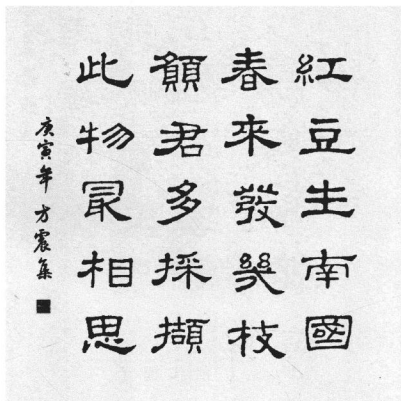 紅豆生南國
春來發幾枝
願君多採擷
此物最相思
庚寅年方震集